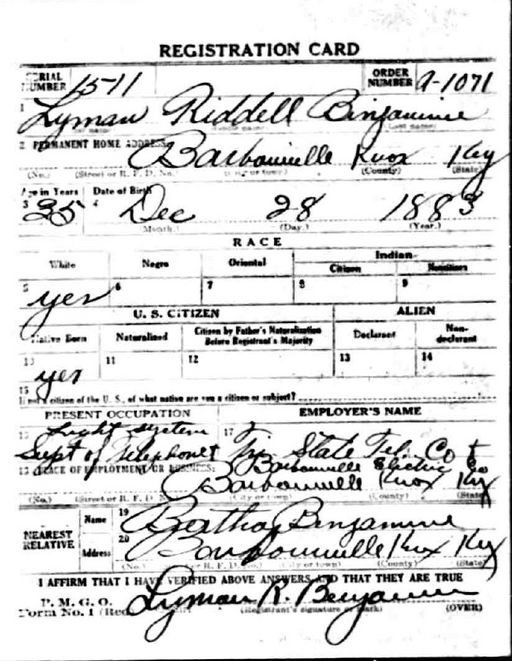 REGISTRATION CARD
SERIAL NUMBER 1511 ORDER NUMBER A-1071
1 Lyman Riddell Benjamine
(First name) (Middle name) (Last name)
2 PERMANENT HOME ADDRESS:
Barbourville Knox Ky
(No.) (Street or R. F. D. No.) (City or town) (County) (State)
Age in Years Date of Birth
3 35 4 Dec 28 1883
(Month.) (Day.) (Year.)
RACE
White Negro Oriental Indian
Citizen Noncitizen
5 yes 6 7 8 9
U. S. CITIZEN ALIEN
Native Born Naturalized Citizen by Father's Naturalization Before Registrant's Majority Declarant Non-declarant
10 yes 11 12 13 14
15
If not a citizen of the U. S., of what nation are you a citizen or subject?
PRESENT OCCUPATION EMPLOYER'S NAME
16 Light system 17
Supt of Telephone & Tri State Tel. Co &
18 PLACE OF EMPLOYMENT OR BUSINESS: Barbourville Electric Co
Barbourville Knox Ky
(No.) (Street or R. F. D. No.) (City or town) (County) (State)
NEAREST RELATIVE Name 19 Bertha Benjamine
Address 20 Barbourville Knox Ky
(No.) (Street or R. F. D. No.) (City or town) (County) (State)
I AFFIRM THAT I HAVE VERIFIED ABOVE ANSWERS AND THAT THEY ARE TRUE
P. M. G. O.
Form No. 1 (Red) Lyman R. Benjamine
(Registrant's signature or mark) (OVER)